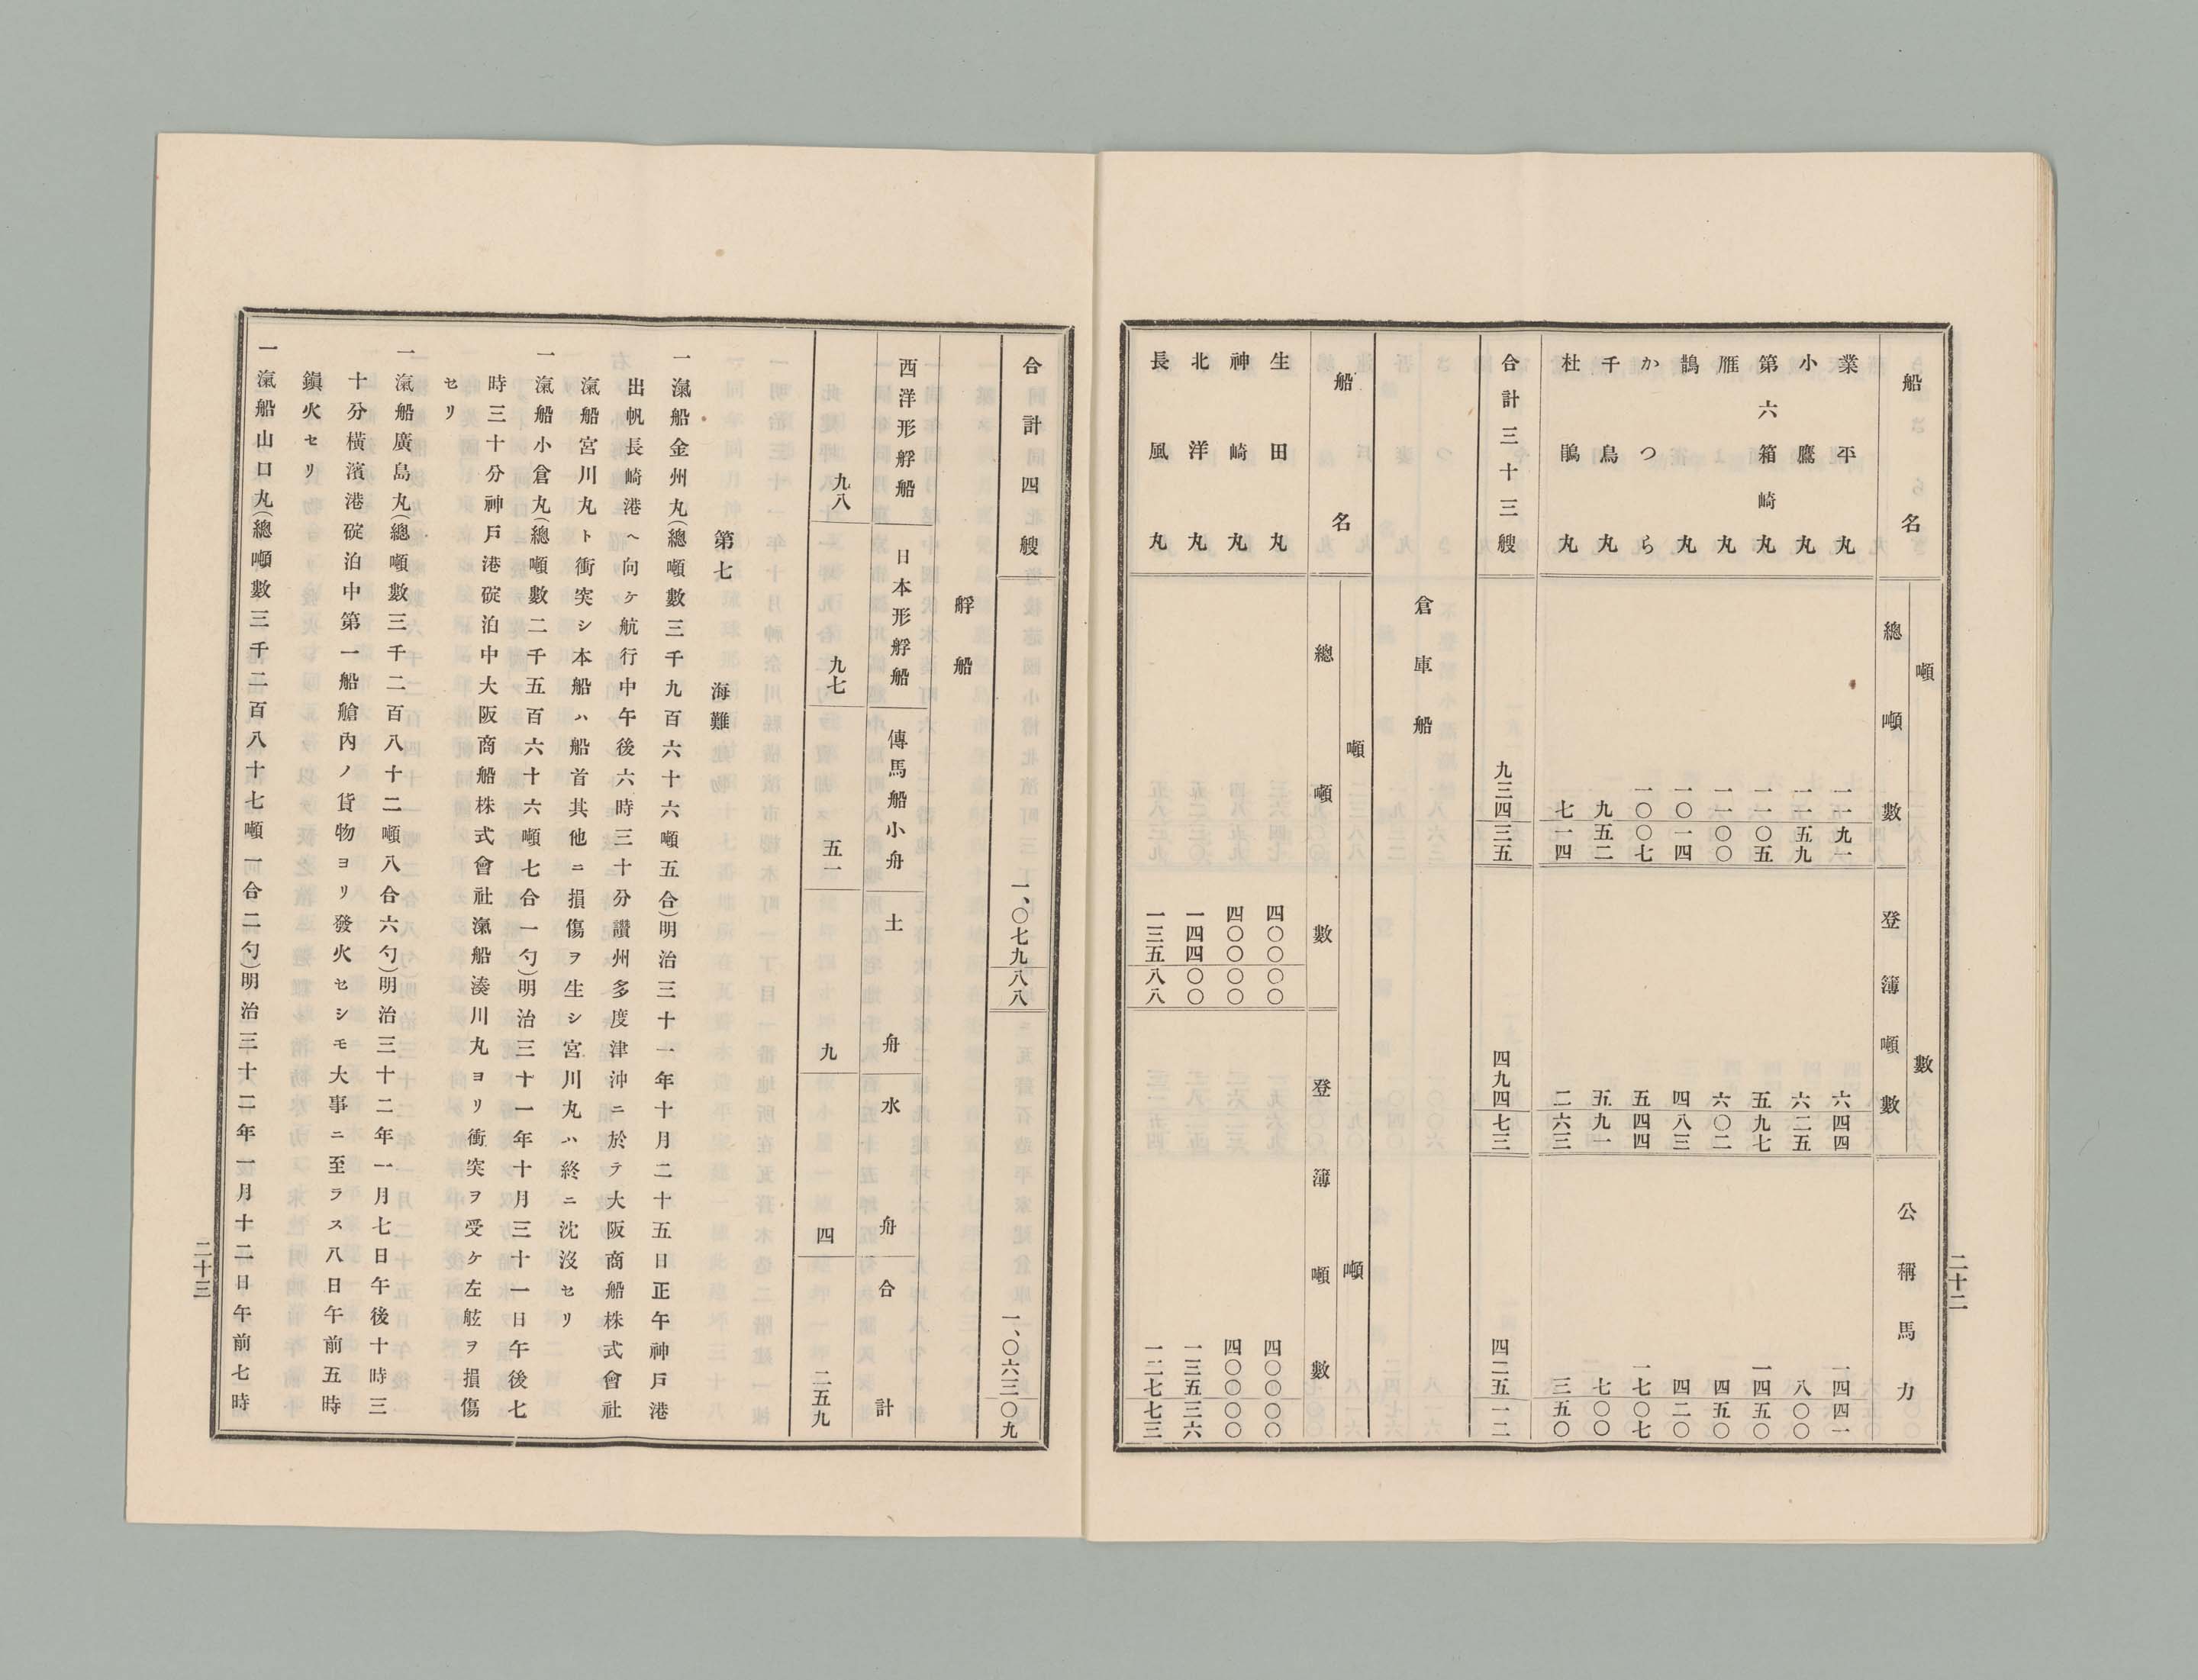 二十二
船名 噸數 總噸數 登簿噸數 公稱馬力
業平丸 一一九一 六四四 一四四一
小鷹丸 一一五九 六二五 八〇〇
第六箱崎丸 一一〇五 五九七 一四五〇
雁丸 一一〇〇 六〇二 四五〇
鵲丸 一〇一四 四八三 四二〇
かつら丸 一〇〇七 五四四 一七〇七
千鳥丸 九五二 五九一 七〇〇
杜鵑丸 七一四 二六三 三五〇
合計三十三艘 九三四三五 四九四七三 四二五一二
倉庫船
船名 噸噸 總噸數 登簿噸數
生田丸 四〇〇〇〇 四〇〇〇〇
神崎丸 四〇〇〇〇 四〇〇〇〇
北洋丸 一四四〇〇 一三五三六
長風丸 一三五八八 一二七七三
合計四艘 一、〇七九八八 一、〇六三〇九
艀船
西洋形艀船 日本形艀船 傳馬船小舟 土舟 水舟 合計
九八 九七 五一 九 四 二五九
第七 海難
一滊船金州丸(總噸數三千九百六十六噸五合)明治三十一年十月二十五日正午神戸港
出帆長崎港ヘ向ケ航行中午後六時三十分讚州多度津沖ニ於テ大阪商船株式會社
滊船宮川丸ト衝突シ本船ハ船首其他ニ損傷ヲ生シ宮川丸ハ終ニ沈沒セリ
一滊船小倉丸(總噸數二千五百六十六噸七合一勺)明治三十一年十月三十一日午後七
時三十分神戸港碇泊中大阪商船株式會社滊船湊川丸ヨリ衝突ヲ受ケ左舷ヲ損傷
セリ
一滊船廣島丸(總噸數三千二百八十二噸八合六勺)明治三十二年一月七日午後十時三
十分橫濱港碇泊中第一船艙內ノ貨物ヨリ發火セシモ大事ニ至ラス八日午前五時
鎭火セリ
一滊船山口丸(總噸數三千二百八十七噸一合二勺)明治三十二年一月十二日午前七時
二十三